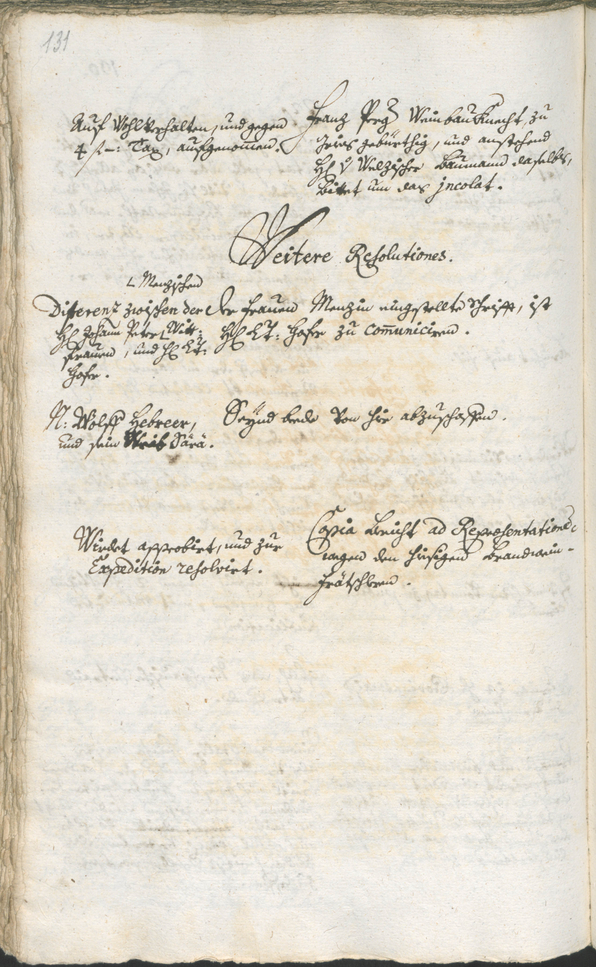 131
Auf Wohlverhalten, und gegen
4 f –: Tax, aufgenommen.
Franz Perg Weinbau Knecht, zu
Gries gebürthig, und anstehend
H: v: Welzischer Baumann daselbst,
Bittet um das jncolat.
Weitere Resolutiones.
Menzischen
Differenz zwischen der
H: Johann Peter Witt:
frauen, und H: LT:
Hofer.
Der frauen Menzin eingestellte Schrifft, ist
H: LT: Hofer zu communiciren.
N: Wolff Hebreer,
und sein Weib Sara.
Seynd beede von hir abzuschaffen.
Wirdet approbirt, und zur
Expedition resolvirt.
Copia Bericht ad Repraesentatione
wegen den hiesigen Brandwein-
frätschlern.